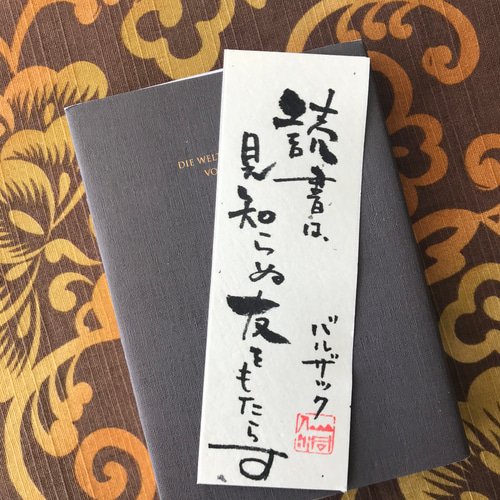 読書は、
見知らぬ
友をもたらす
バルザック
DIE WELT
VO